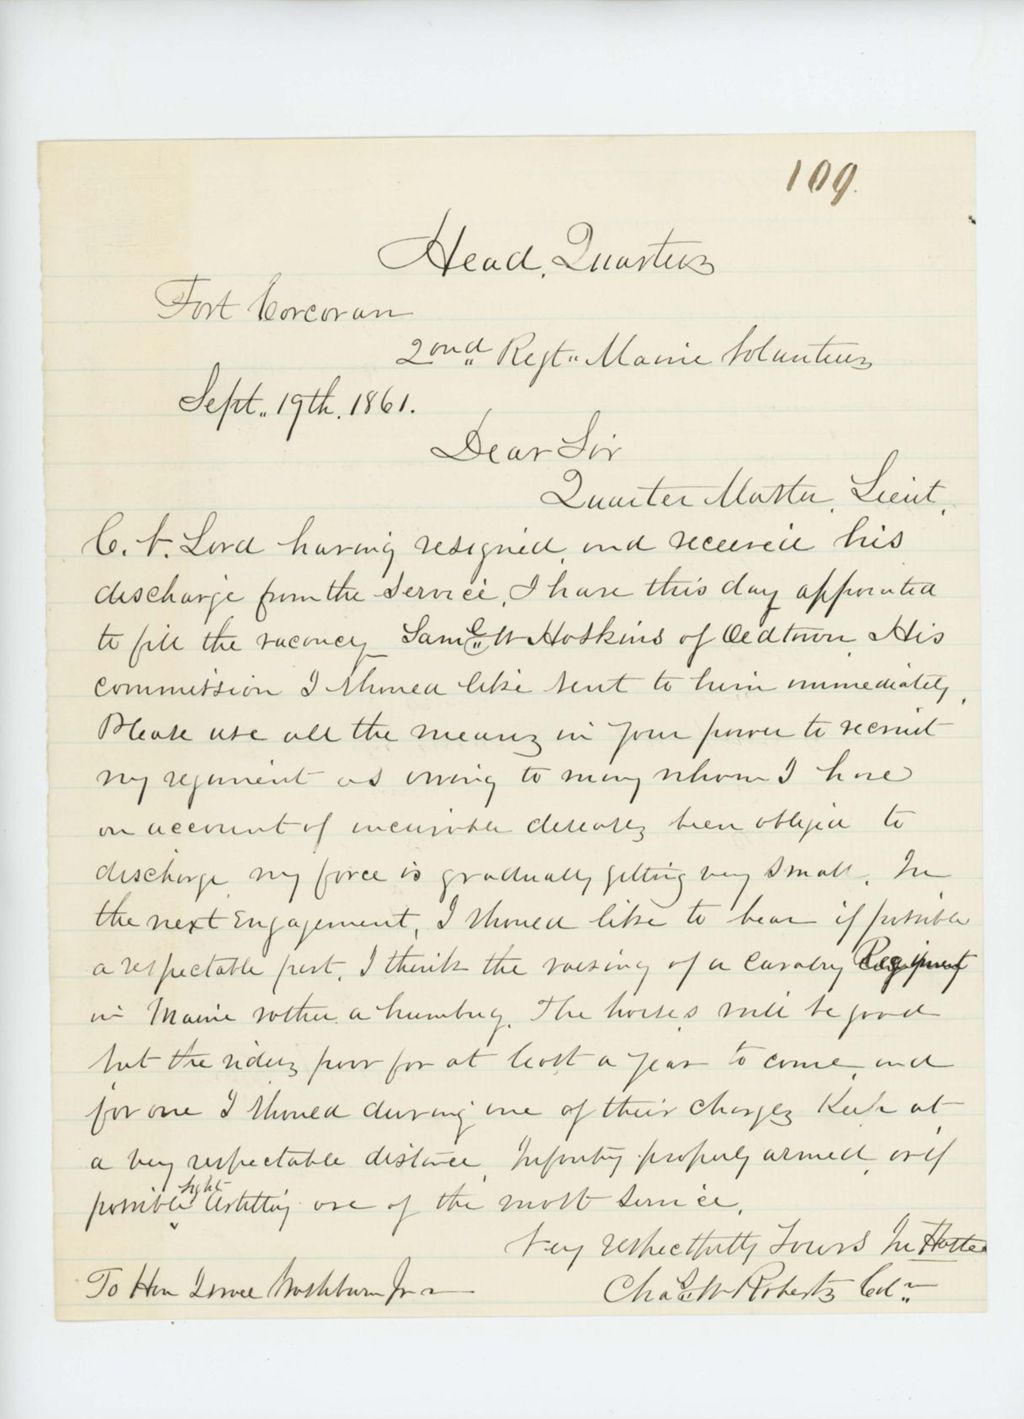 109.
Head, Quarters
Fort Corcoran
2ond Regt" Maine Volunteers
Sept" 19th. 1861.
Dear Sir
Quarter Master, Lieut,
C. V. Lord having resigned, and received his
discharge from the service, I have this day appointed
to fill the vacancy Saml W Hoskins of Oldtown. His
commission I should like sent to him immediately,
Please use all the means in your power to recruit
my regiment as owing to many whom I have
on account of incurable diseases been obliged to
discharge my force is gradually getting very small. In
the next Engagement, I should like to bear if possible
a respectable part. I think the raising of a Cavalry Regiment
in Maine rather a humbug. The horses will be good
but the riders poor for at least a year to come, and
for one I should during one of their charges Keep at
a very respectable distance. Infantry properly armed, or if
possible light Artillery are of the most service.
Very respectfully Yours In Haste
To Hon Israel Washburn Jr Chas W Roberts Col"